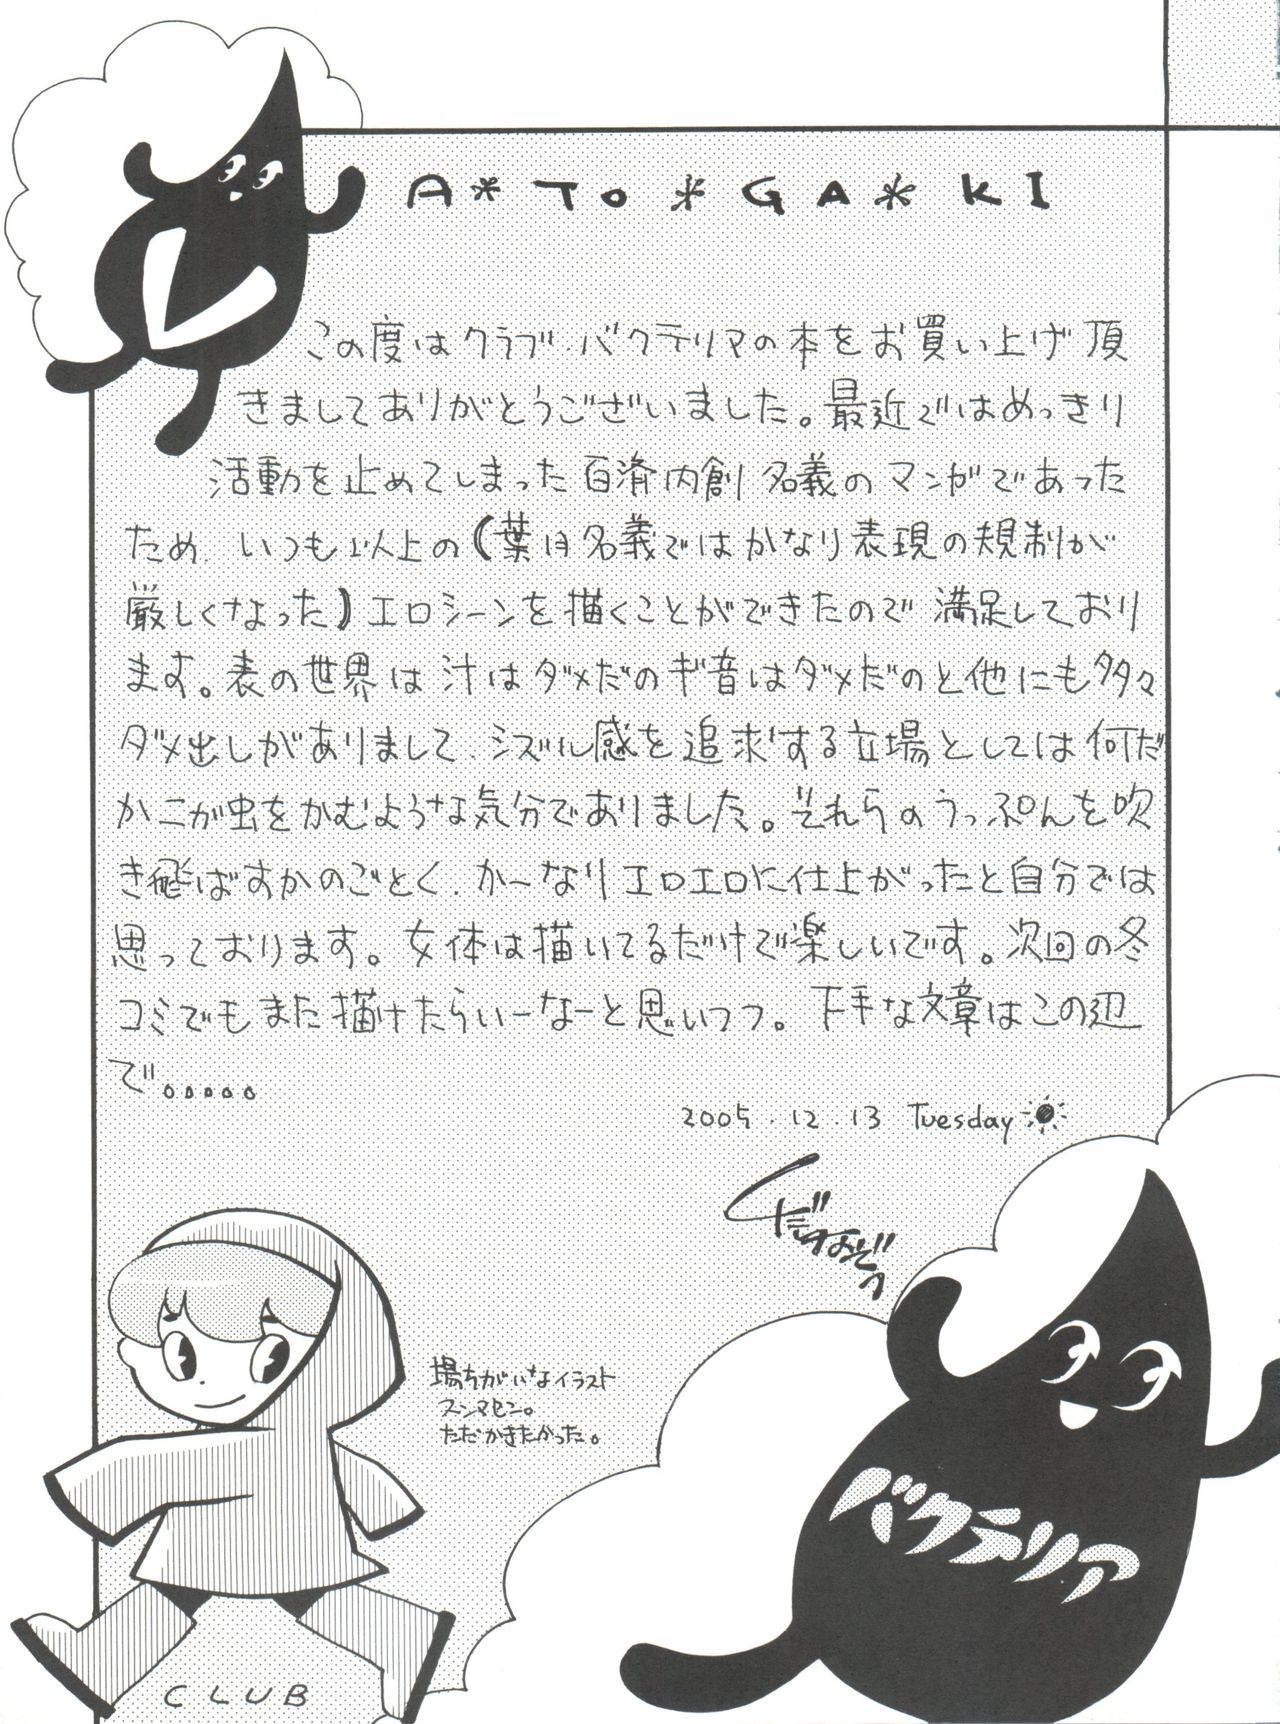 A*TO*GA*KI
この度はクラブ・バクテリマの本をお買い上げ頂
きましてありがとうございました。最近ではめっきり
活動を止めてしまった百済内創名義のマンガであった
ため、いつも以上の(葉月名義ではかなり表現の規制が
厳しくなった)エロシーンを描くことができたので満足しており
ます。表の世界は汁はダメだのギ音はダメだのと他にも多々
ダメ出しがありまして、シズル感を追求する立場としては何だ
かニが虫をかむような気分でありました。それらのうっぷんを吹
き飛ばすかのごとく、かーなりエロエロに仕上がったと自分では
思っております。女体は描いてるだけで楽しいです。次回の冬
コミでもまた描けたらいーなーと思いつつ。下手な文章はこの辺
で。。。。。
2005.12.13 Tuesday
場ちがいなイラスト
スンマセン。
ただかきたかった。
バクテリア
CLUB